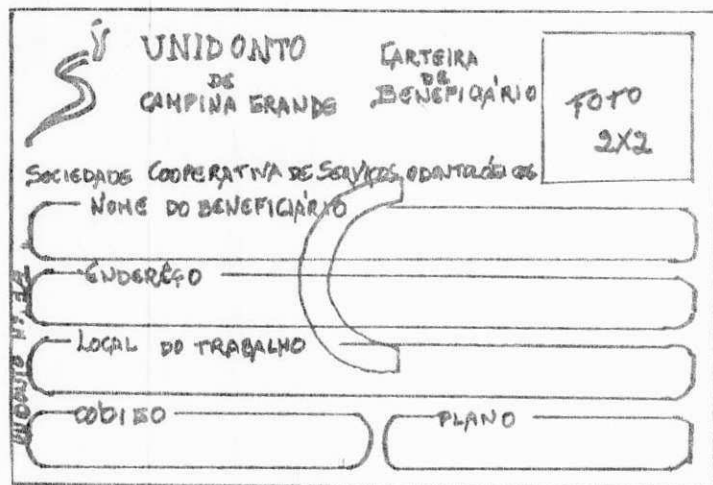 UNIDONTO
DE
CAMPINA GRANDE
CARTEIRA
DE
BENEFICIÁRIO
FOTO
2X2
SOCIEDADE COOPERATIVA DE SERVIÇOS ODONTOLÓGICOS
NOME DO BENEFICIÁRIO
ENDERÊÇO
LOCAL DO TRABALHO
CODIGO
PLANO
UNIDONTO